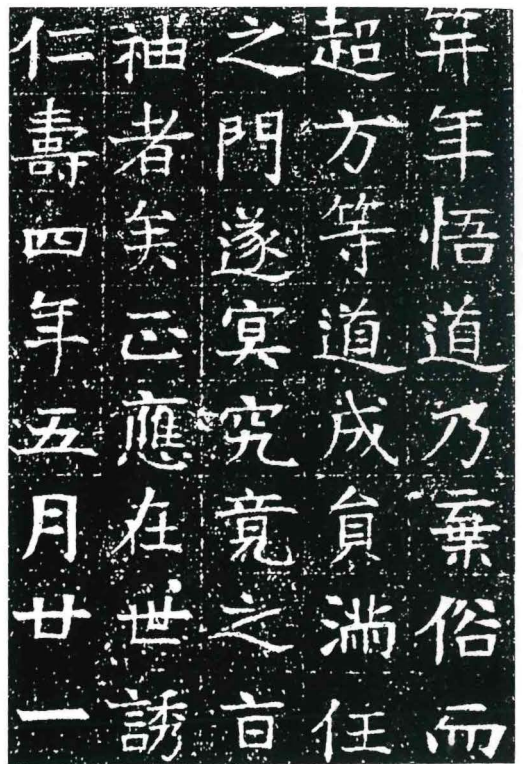 笄年悟道乃棄俗而
超方等道成員滿任
之門遂冥究竟之旨
袖者矣正應在世誘
仁壽四年五月廿一